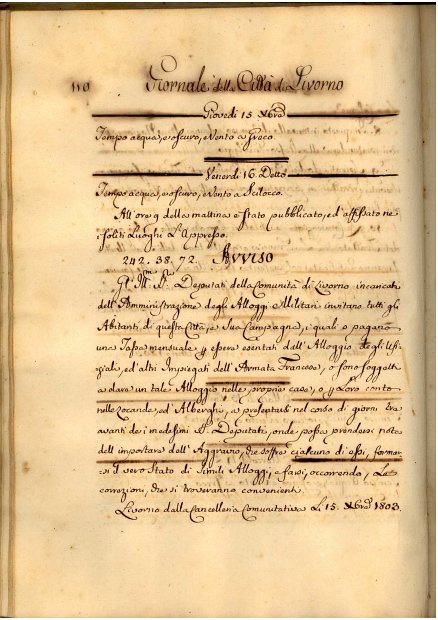 110 Giornale della Città di Livorno
Giovedì 15. Xbre
Tempo acqua, e oscuro, e Vento a Greco.
Venerdì 16. Detto
Tempo acqua, e oscuro, e Vento a Scilocco.
All'ore 9 della mattina è stato pubblicato, ed affissato ne
i soliti Luoghi L'appresso.
242. 38. 72. Avviso
Gl' Ill.mi SS. Deputati della Comunità di Livorno incaricati
dell'Amministrazione degli Alloggi Militari invitano tutti gli
Abitanti di questa Città, e Sua Campagna, i quali o pagano
una Tassa mensuale p essere esentati dall'Alloggio degli Uffi-
ziali, ed altri Impiegati dell'Armata Francese, o sono soggetti
a dare un tale Alloggio nelle proprie case, o p Loro conto
nelle Locande, ed Alberghi, a presentarsi nel corso di giorni tre
avanti dei medesimi SS. Deputati, onde possa prendersi nota
dell'importare dell'Aggravio, che soffre ciascuno di essi, formar-
si il vero Stato di simili Alloggi, e farsi, occorrendo, Le
correzioni, che si troveranno convenienti.
Livorno dalla Cancelleria Comunitativa Li 15. Xbre 1803.